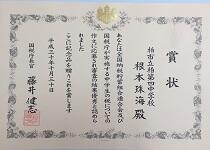 賞状
柏市立柏第四中学校
根本珠海殿
あなたは全国納税貯蓄組合連合会及び
国税庁が実施する中学生の税についての
作文に応募され審査の結果優秀と認め
ここに記念品を贈りこれを賞します
平成三十年十月三十日
国税庁長官
藤井健志